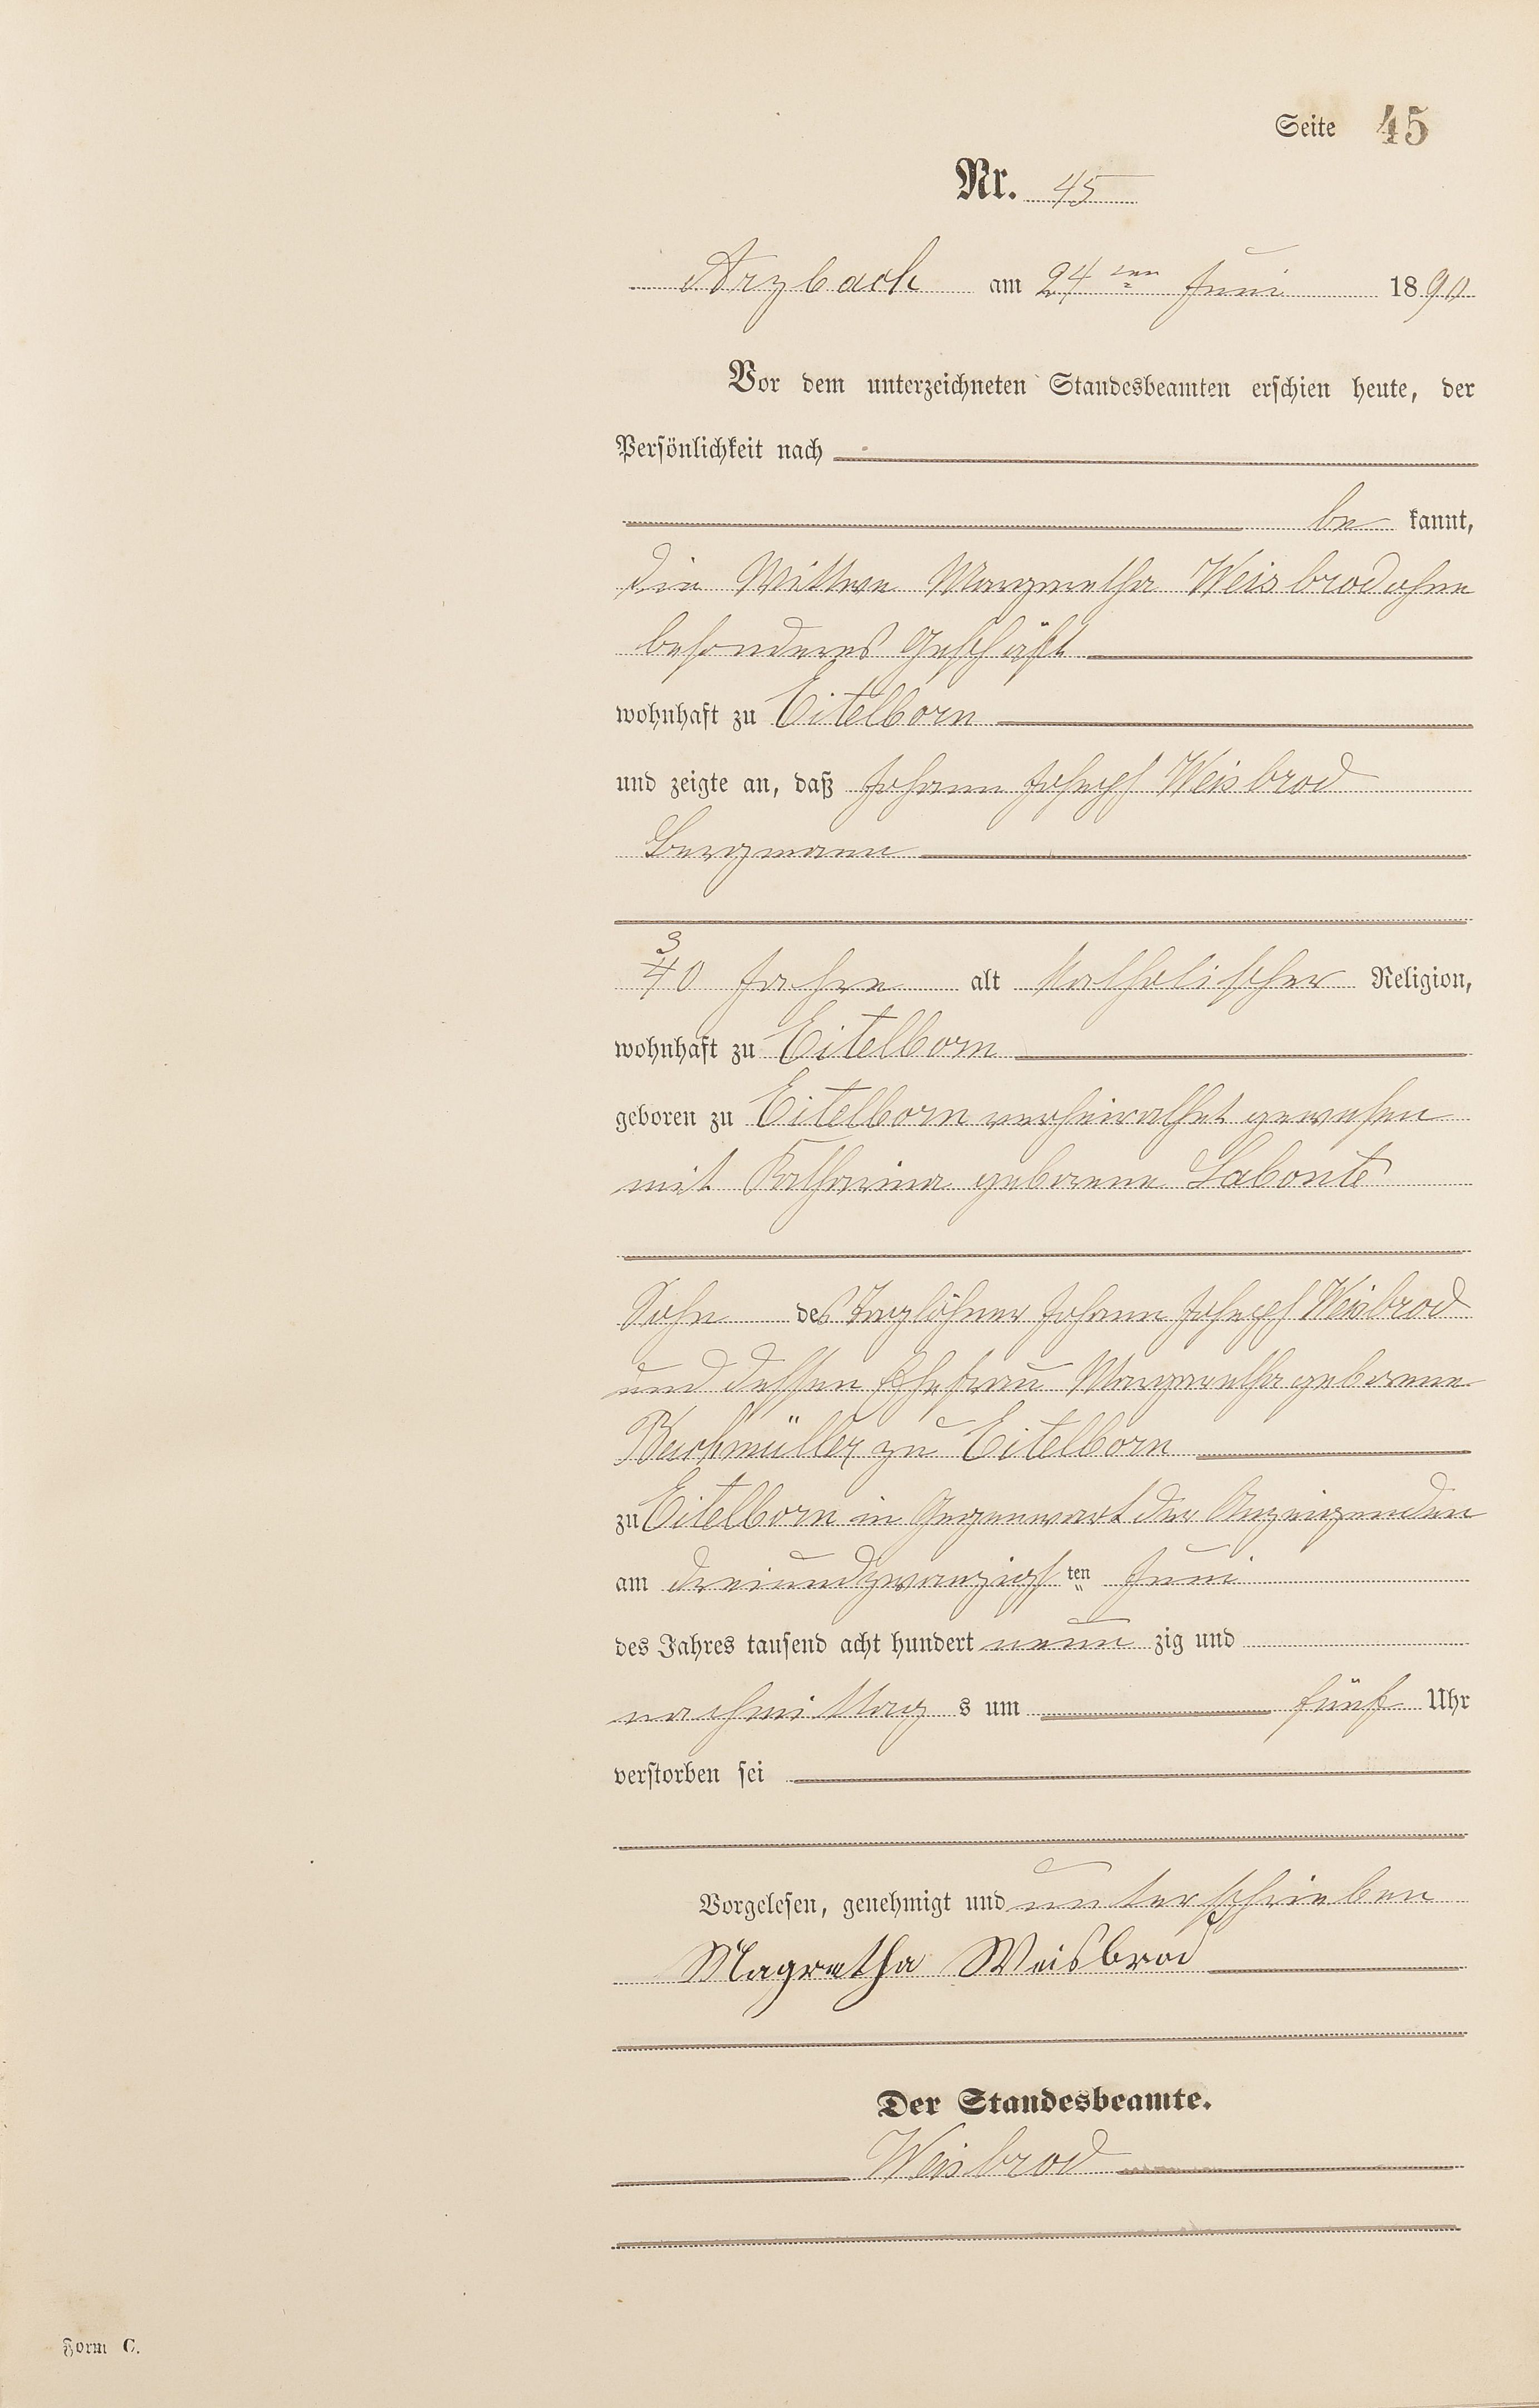 Seite 45
Nr. 45
Arzbach am 24ten Juni 1890
Vor dem unterzeichneten Standesbeamten erschien heute, der
Persönlichkeit nach
be kannt,
die Wittwe Margaretha Weisbrod ohne
besonderes Geschäft
wohnhaft zu Eitelborn
und zeigte an, daß Johann Joseph Weisbrod
Bergmann
3
40 Jahre alt katholischer Religion,
wohnhaft zu Eitelborn
geboren zu Eitelborn verheirathet gewesen
mit Katharina geborene Labonte
Sohn des Taglöhner Johann Joseph Weisbrod
und dessen Ehefrau Margaretha geborene
zu Eitelborn
zu Eitelborn in Gegenwart der Anzeigenden
am dreiundzwanzigsten Juni
des Jahres tausend acht hundert neun zig und
nachmittag s um fünf Uhr
verstorben sei
Vorgelesen, genehmigt und unterschrieben
Magretha Weisbrod
Der Standesbeamte.
Weisbrod
Form C.